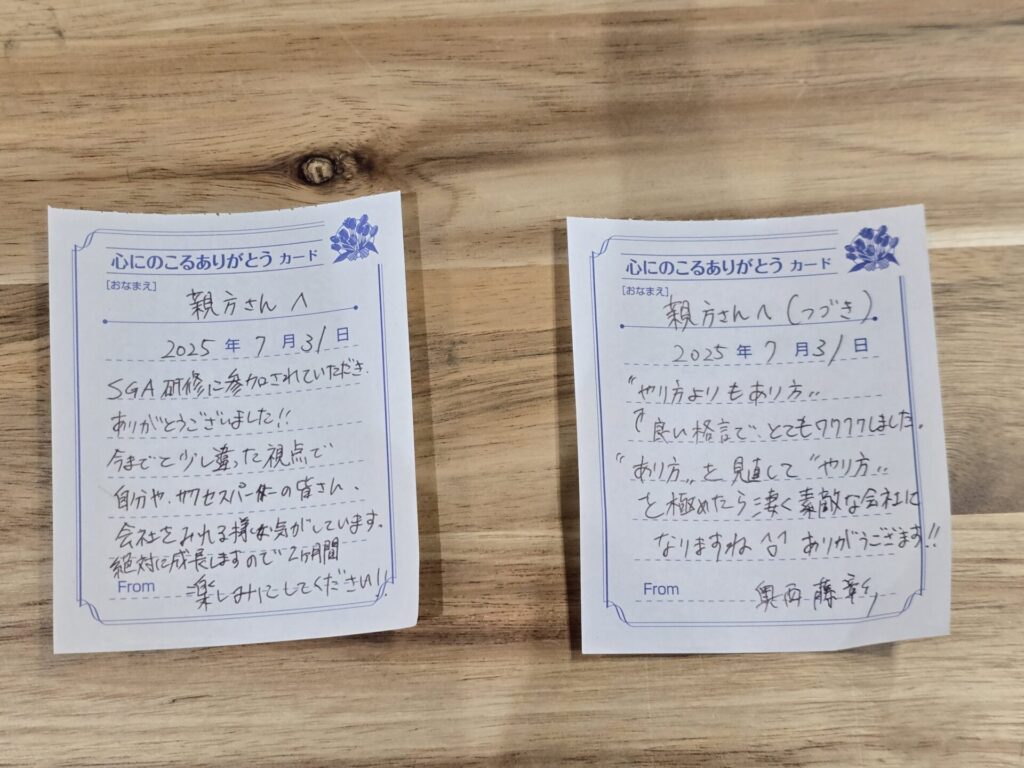 心にのこるありがとう カード
[おなまえ]
親方さんへ
2025 年 7 月 31 日
SGA研修に参加されていただき
ありがとうございました!!
今までと少し違った視点で
自分や、サクセスパートナーの皆さん、
会社をみれる様な気がしています。
絶対に成長しますので2ヶ月間
From 楽しみにしてください!!
心にのこるありがとう カード
[おなまえ]
親方さんへ(つづき)
2025 年 7 月 31 日
"やり方よりもあり方"
↑良い格言で、とてもワクワクしました。
"あり方"を見直して"やり方"
を極めたら凄く素敵な会社に
なりますね^0^ ありがうごさます!!
From 奥西藤